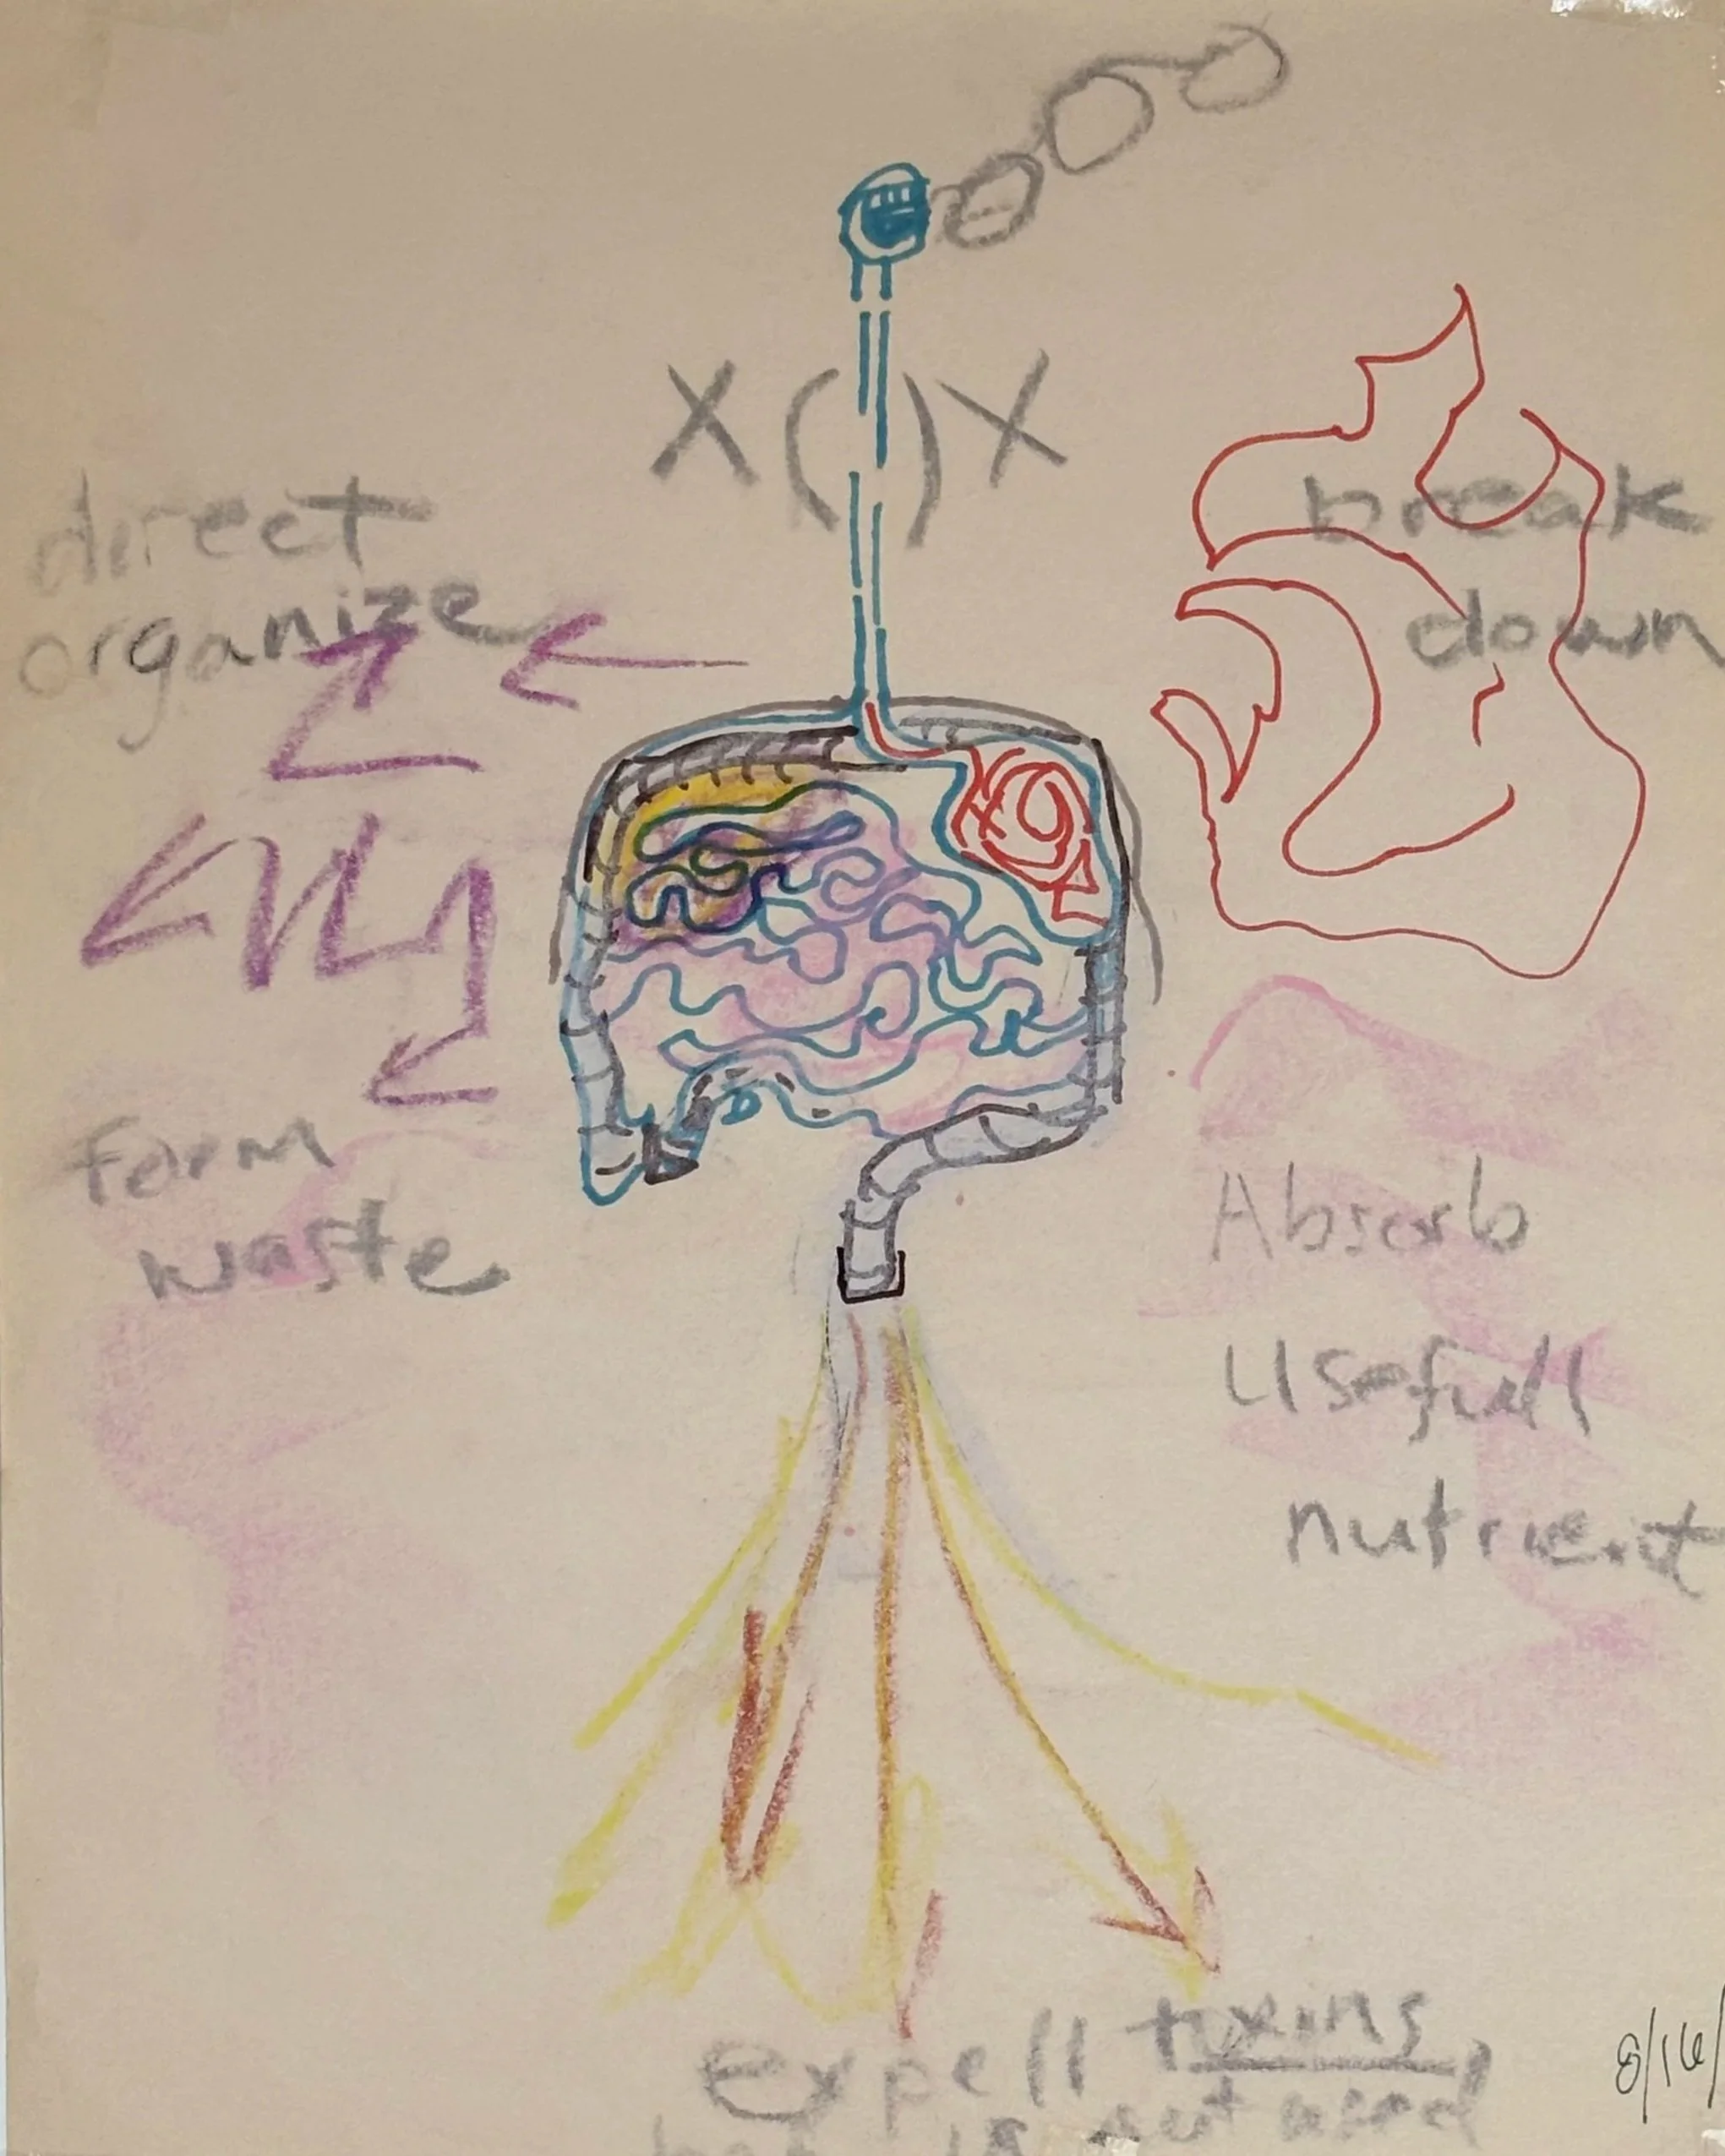 X ( ) X
direct
organize
break
down
form
waste
Absorb
Usefull
nutrient
expell toxins
is not used
8/16/